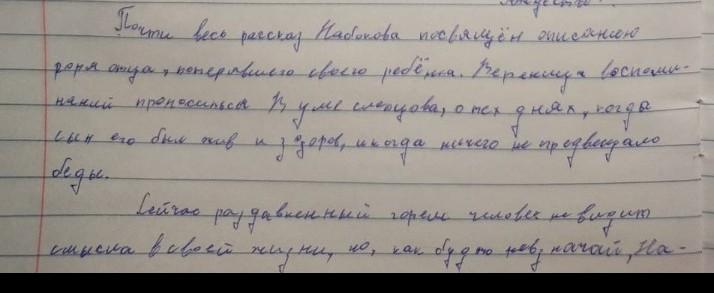 Почти весь рассказ Набокова посвящён описанию
горя отца, потерявшего своего ребёнка. Вереница воспоми-
наний проносилься в уме слепцова, о тех днях, когда
сын его был жив и здоров, и когда ничего не предвещало
беды.
Сейчас раздавленный горем человек не видит
смысла в своей жизни, но, как будто невзначай, На-